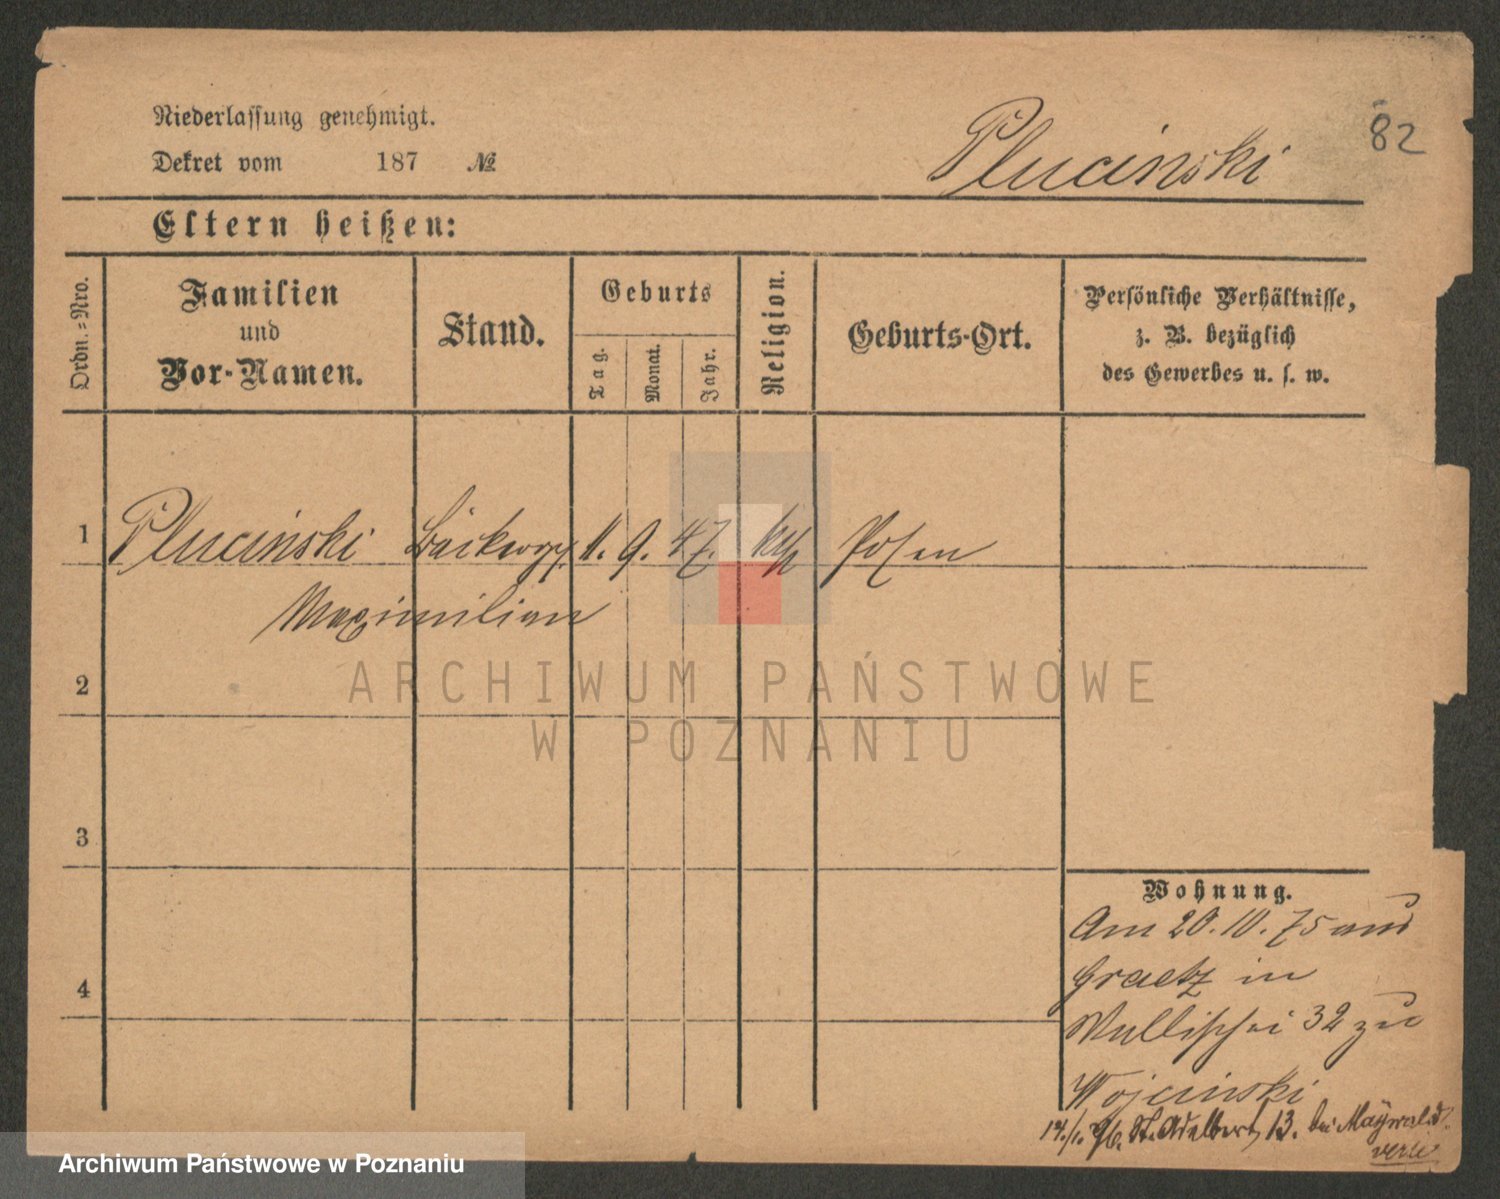 82
Niederlassung genehmigt.
Plucinski
Dekret vom 187 №
Eltern heißen:
Ordn.=Nro.
Familien
und
Vor-Namen.
Stand.
Geburts
Tag.
Monat.
Jahr.
Religion.
Geburts-Ort.
Persönliche Verhältnisse,
z. B. bezüglich
des Gewerbes u. s. w.
1 Plucinski 11. 9. 47. kth Posen
Maximilian
2
3
4
Wohnung.
Am 20. 10. 75 aus
Graetz in
Wallischei 32 zu
Wojcinski
14./1. 76. St. Adalbert 13. bei Maywald.
ARCHIWUM PAŃSTWOWE
W POZNANIU
Archiwum Państwowe w Poznaniu